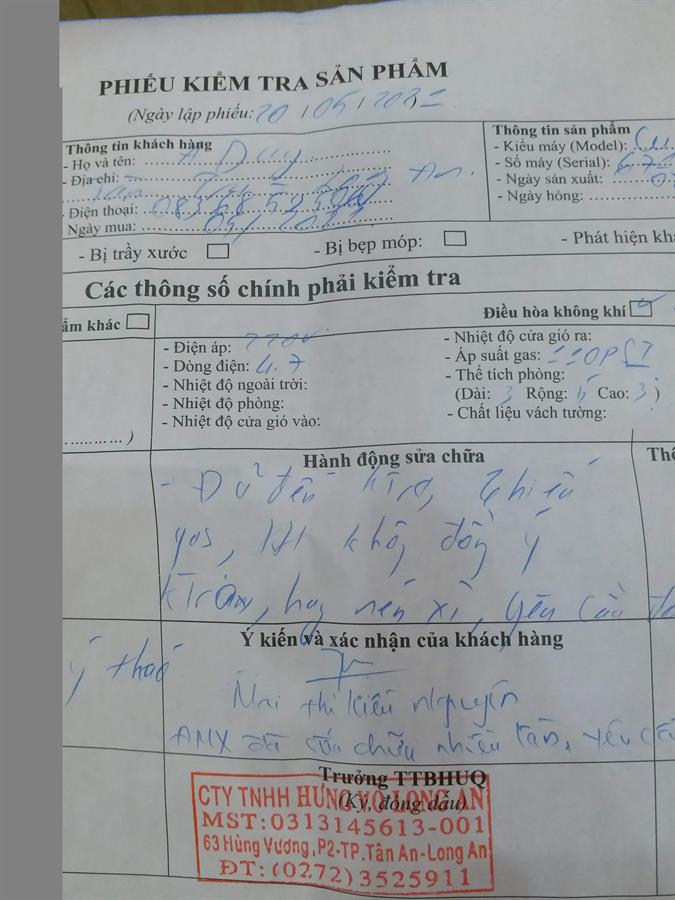 PHIẾU KIỂM TRA SẢN PHẨM
(Ngày lập phiếu: 20 / 05 /
Thông tin khách hàng
- Họ và tên: A Duy
- Địa chỉ:
Tân An
- Điện thoại:
Ngày mua:
Thông tin sản phẩm
- Kiểu máy (Model): Cu
- Số máy (Serial):
- Ngày sản xuất:
- Ngày hỏng:
- Bị trầy xước
- Bị bẹp móp:
- Phát hiện
Các thông số chính phải kiểm tra
ẩm khác
Điều hòa không khí
- Điện áp: 220v
- Dòng điện: 4.7
- Nhiệt độ ngoài trời:
- Nhiệt độ phòng:
- Nhiệt độ cửa gió vào:
- Nhiệt độ cửa gió ra:
- Áp suất gas:
- Thể tích phòng:
(Dài: 3 Rộng: Cao: 3 )
- Chất liệu vách tường:
...........)
Hành động sửa chữa
- Đã đến ktra, thiếu
gas, không đồng ý
nén xì, yêu cầu
Ý kiến và xác nhận của khách hàng
ý
Mai thị kiều nguyên
đã sửa chữa nhiều lần, yêu cầ
Trưởng TTBHUQ
(Ký, đóng dấu)
CTY TNHH HƯNG VÕ LONG AN
MST:0313145613-001
63 Hùng Vương,P2-TP.Tân An-Long An
ĐT:(0272)3525911